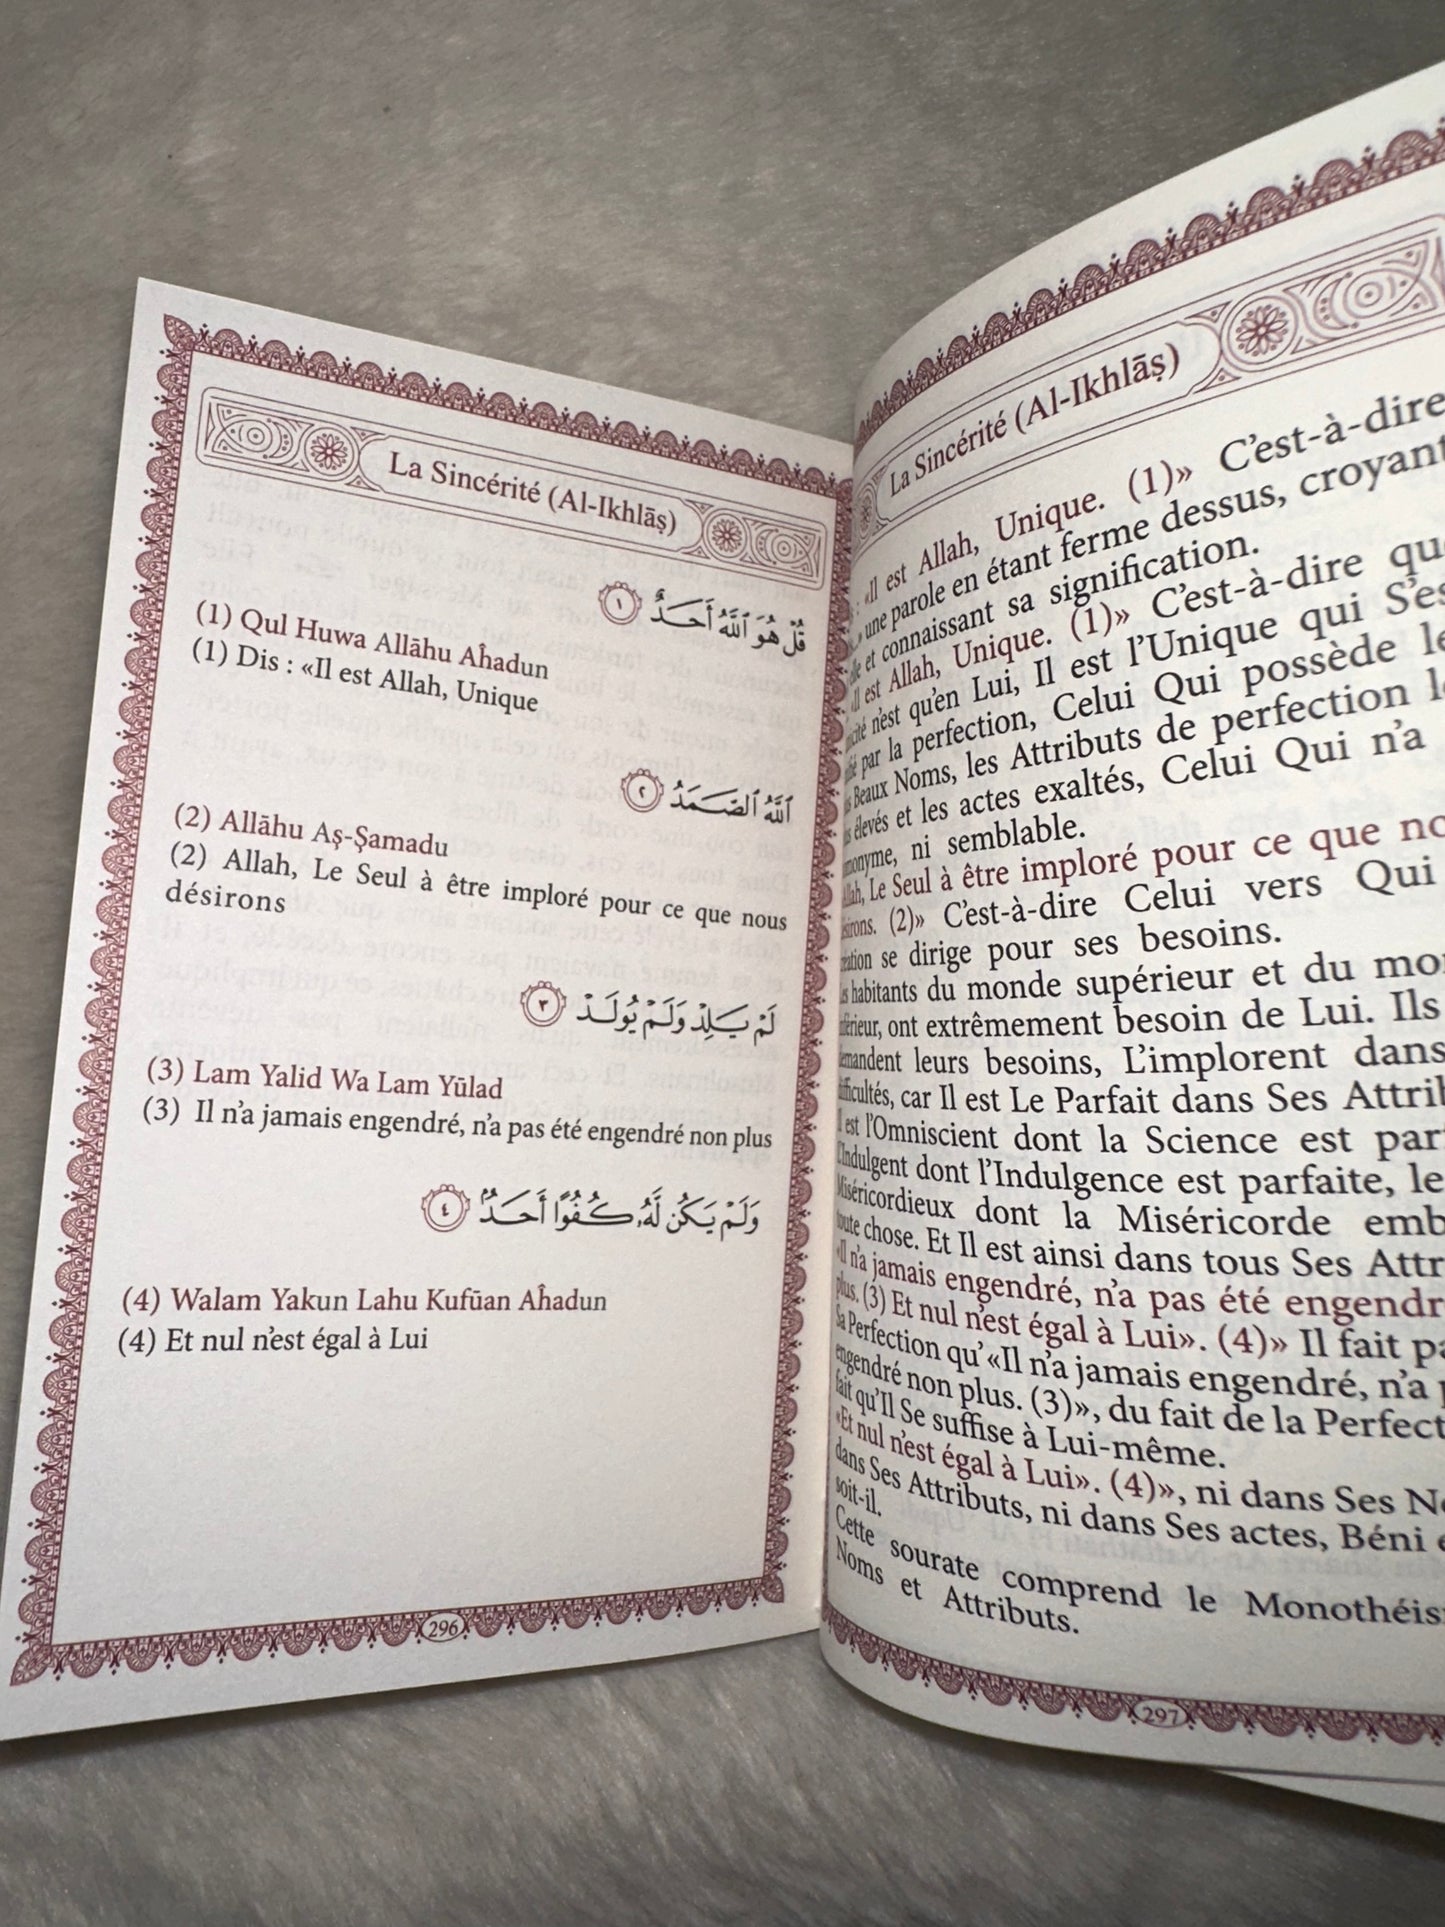 La Sincérité (Al-Ikhlāṣ)
قُلْ هُوَ ٱللَّهُ أَحَدٌ ١
(1) Qul Huwa Allāhu Aĥadun
(1) Dis : «Il est Allah, Unique
ٱللَّهُ ٱلصَّمَدُ ٢
(2) Allāhu Aş-Şamadu
(2) Allah, Le Seul à être imploré pour ce que nous
désirons
لَمْ يَلِدْ وَلَمْ يُولَدْ ٣
(3) Lam Yalid Wa Lam Yūlad
(3) Il n’a jamais engendré, n’a pas été engendré non plus
وَلَمْ يَكُن لَّهُۥ كُفُوًا أَحَدٌۢ ٤
(4) Walam Yakun Lahu Kufūan Aĥadun
(4) Et nul n’est égal à Lui
296
La Sincérité (Al-Ikhlāṣ)
: «Il est Allah, Unique. (1)» C’est-à-dire
» une parole en étant ferme dessus, croyant
et connaissant sa signification.
«Il est Allah, Unique. (1)» C’est-à-dire
n’est qu’en Lui, Il est l’Unique qui S’es
par la perfection, Celui Qui possède le
Beaux Noms, les Attributs de perfection
élevés et les actes exaltés, Celui Qui n’a
ni semblable.
Allah, Le Seul à être imploré pour ce que
(2)» C’est-à-dire Celui vers Qui
se dirige pour ses besoins.
habitants du monde supérieur et du
ont extrêmement besoin de Lui. Ils
leurs besoins, L’implorent dans
car Il est Le Parfait dans Ses
Il est l’Omniscient dont la Science est
L’Indulgent dont l’Indulgence est parfaite, le
Miséricordieux dont la Miséricorde
toute chose. Et Il est ainsi dans tous Ses
«Il n’a jamais engendré, n’a pas été engendr
plus, (3) Et nul n’est égal à Lui». (4)» Il fait
Sa Perfection qu’«Il n’a jamais engendré, n’a
engendré non plus. (3)», du fait de la
fait qu’Il Se suffise à Lui-même.
«Et nul n’est égal à Lui». (4)», ni dans Ses
dans Ses Attributs, ni dans Ses actes, Béni
soit-il.
Cette sourate comprend le
Noms et Attributs.
297